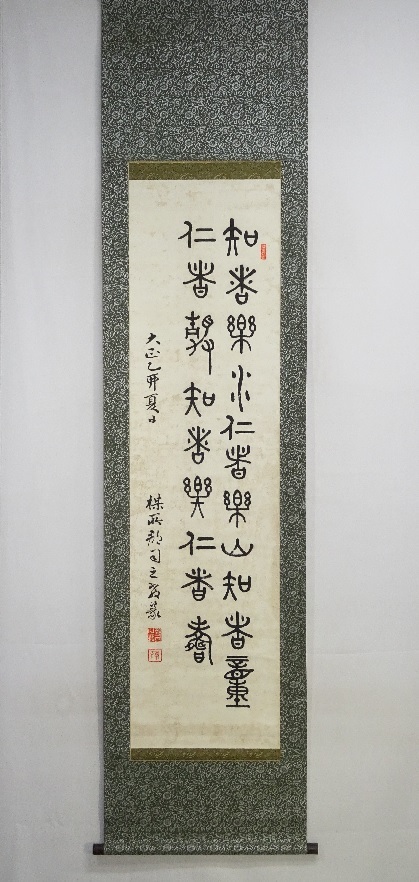 知者樂水仁者樂山知者動
仁者靜知者樂仁者壽
大正乙卯夏日
楳所郡司之教篆